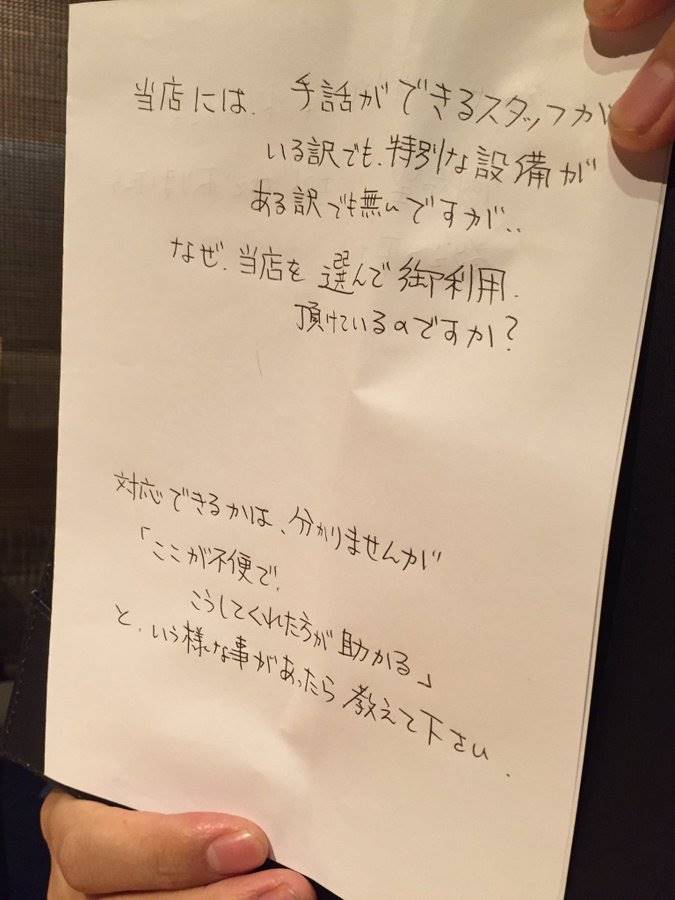 当店には、手話ができるスタッフが
いる訳でも、特別な設備が
ある訳でも無いですが、、
なぜ、当店を選んで御利用
頂けているのですか?
対応できるかは、分かりませんが
「ここが不便で、
こうしてくれた方が助かる」
と、いう様な事があったら教えて下さい。